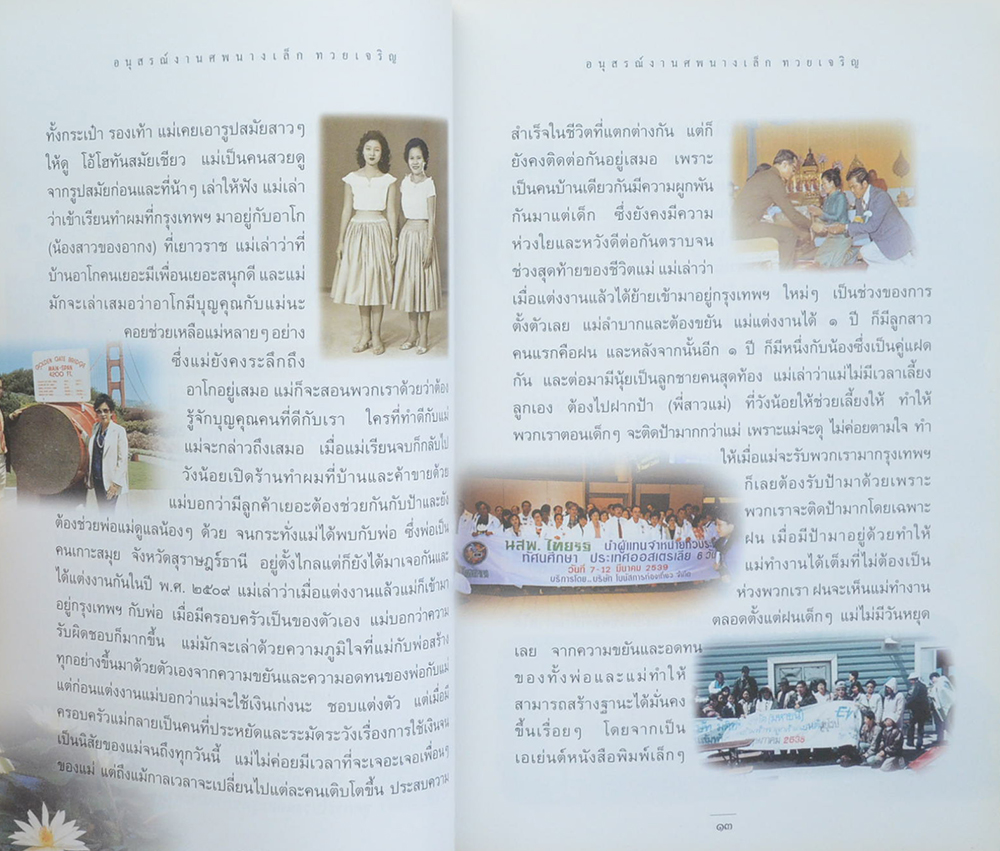 อนุสรณ์งานศพนางเล็ก ทวยเจริญ
ทั้งกระเป๋า รองเท้า แม่เคยเอารูปสมัยสาวๆ
ให้ดู โอ้โฮทันสมัยเชียว แม่เป็นคนสวยดู
จากรูปสมัยก่อนและที่น้าๆ เล่าให้ฟัง แม่เล่า
ว่าเข้าเรียนทำผมที่กรุงเทพฯ มาอยู่กับอาโก
(น้องสาวของอากง) ที่เยาวราช แม่เล่าว่าที่
บ้านอาโกคนเยอะมีเพื่อนเยอะสนุกดี และแม่
มักจะเล่าเสมอว่าอาโกมีบุญคุณกับแม่นะ
คอยช่วยเหลือแม่หลายๆ อย่าง
ซึ่งแม่ยังคงระลึกถึง
อาโกอยู่เสมอ แม่ก็จะสอนพวกเราด้วยว่าต้อง
รู้จักบุญคุณคนที่ดีกับเรา ใครที่ทำดีกับแม่
แม่จะกล่าวถึงเสมอ เมื่อแม่เรียนจบก็กลับไป
วังน้อยเปิดร้านทำผมที่บ้านและค้าขายด้วย
แม่บอกว่ามีลูกค้าเยอะต้องช่วยกันกับป้าและยัง
ต้องช่วยพ่อแม่ดูแลน้องๆ ด้วย จนกระทั่งแม่ได้พบกับพ่อ ซึ่งพ่อเป็น
คนเกาะสมุย จังหวัดสุราษฎร์ธานี อยู่ตั้งไกลแต่ก็ยังได้มาเจอกันและ
ได้แต่งงานกันในปี พ.ศ. ๒๕๐๙ แม่เล่าว่าเมื่อแต่งงานแล้วแม่ก็เข้ามา
อยู่กรุงเทพฯ กับพ่อ เมื่อมีครอบครัวเป็นของตัวเอง แม่บอกว่าความ
รับผิดชอบก็มากขึ้น แม่มักจะเล่าด้วยความภูมิใจที่แม่กับพ่อสร้าง
ทุกอย่างขึ้นมาด้วยตัวเองจากความขยันและความอดทนของพ่อกับแม่
แต่ก่อนแต่งงานแม่บอกว่าแม่จะใช้เงินเก่งนะ ชอบแต่งตัว แต่เมื่อมี
ครอบครัวแม่กลายเป็นคนที่ประหยัดและระมัดระวังเรื่องการใช้เงินจน
เป็นนิสัยของแม่จนถึงทุกวันนี้ แม่ไม่ค่อยมีเวลาที่จะเจอะเจอเพื่อนๆ
ของแม่ แต่ถึงแม้กาลเวลาจะเปลี่ยนไปแต่ละคนเติบโตขึ้น ประสบความ
GOLDEN GATE BRIDGE
MAIN SPAN
4200 FT.
อนุสรณ์งานศพนางเล็ก ทวยเจริญ
สำเร็จในชีวิตที่แตกต่างกัน แต่ก็
ยังคงติดต่อกันอยู่เสมอ เพราะ
เป็นคนบ้านเดียวกันมีความผูกพัน
กันมาแต่เด็ก ซึ่งยังคงมีความ
ห่วงใยและหวังดีต่อกันตราบจน
ช่วงสุดท้ายของชีวิตแม่ แม่เล่าว่า
เมื่อแต่งงานแล้วได้ย้ายเข้ามาอยู่กรุงเทพฯ ใหม่ๆ เป็นช่วงของการ
ตั้งตัวเลย แม่ลำบากและต้องขยัน แม่แต่งงานได้ ๑ ปี ก็มีลูกสาว
คนแรกคือฝน และหลังจากนั้นอีก ๑ ปี ก็มีหนึ่งกับน้องซึ่งเป็นคู่แฝด
กัน และต่อมามีนุ้ยเป็นลูกชายคนสุดท้อง แม่เล่าว่าแม่ไม่มีเวลาเลี้ยง
ลูกเอง ต้องไปฝากป้า (พี่สาวแม่) ที่วังน้อยให้ช่วยเลี้ยงให้ ทำให้
พวกเราตอนเด็กๆ จะติดป้ามากกว่าแม่ เพราะแม่จะดุ ไม่ค่อยตามใจ ทำ
ให้เมื่อแม่จะรับพวกเรามากรุงเทพฯ
ก็เลยต้องรับป้ามาด้วยเพราะ
พวกเราจะติดป้ามากโดยเฉพาะ
ฝน เมื่อมีป้ามาอยู่ด้วยทำให้
แม่ทำงานได้เต็มที่ไม่ต้องเป็น
ห่วงพวกเรา ฝนจะเห็นแม่ทำงาน
ตลอดตั้งแต่ฝนเด็กๆ แม่ไม่มีวันหยุด
เลย จากความขยันและอดทน
ของทั้งพ่อและแม่ทำให้
สามารถสร้างฐานะได้มั่นคง
ขึ้นเรื่อยๆ โดยจากเป็น
เอเย่นต์หนังสือพิมพ์เล็กๆ
นสพ. ไทยรัฐ นำผู้แทนจำหน่ายทั่วประ
ทัศนศึกษา ประเทศออสเตรเลีย 6 วัน
วันที่ 7-12 มีนาคม 2539
๑๓